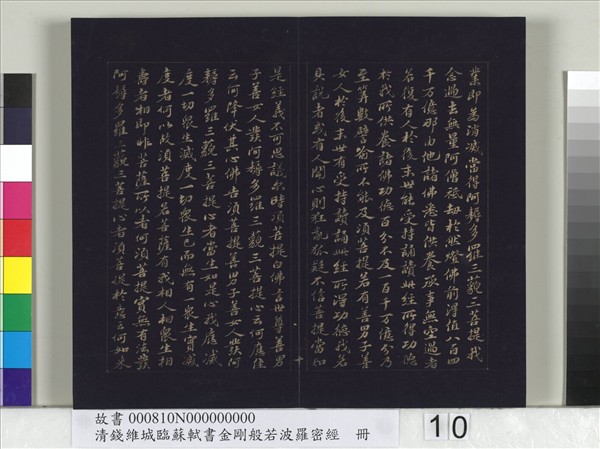 業即為消滅當得阿耨多羅三藐三菩提我
念過去無量阿僧祇劫於然燈佛前得值八百四
千万億那由他諸佛悉皆供養承事無空過者
若復有人於後末世能受持讀誦此經所得功德
於我所供養諸佛功德百分不及一百千万億分乃
至筭數譬喻所不能及須菩提若有善男子善
女人於後末世有受持讀誦此經所得功德我若
具說者或有人聞心則狂亂狐疑不信菩提當知
是經義不可思議尔時須菩提白佛言世尊善男
子善女人發阿耨多羅三藐三菩提心云何應住
云何降伏其心佛告須菩提善男子善女人發阿
耨多羅三藐三菩提心者當生如是心我應滅
度一切衆生滅度一切衆生已而無有一衆生實滅
度者何以故須菩提若菩薩有我相人相衆生相
壽者相即非菩薩所以者何須菩提實無有法發
阿耨多羅三藐三菩提心者須菩提於意云何如來
故書 000810N000000000
清錢維城臨蘇軾書金剛般若波羅密經 冊
10